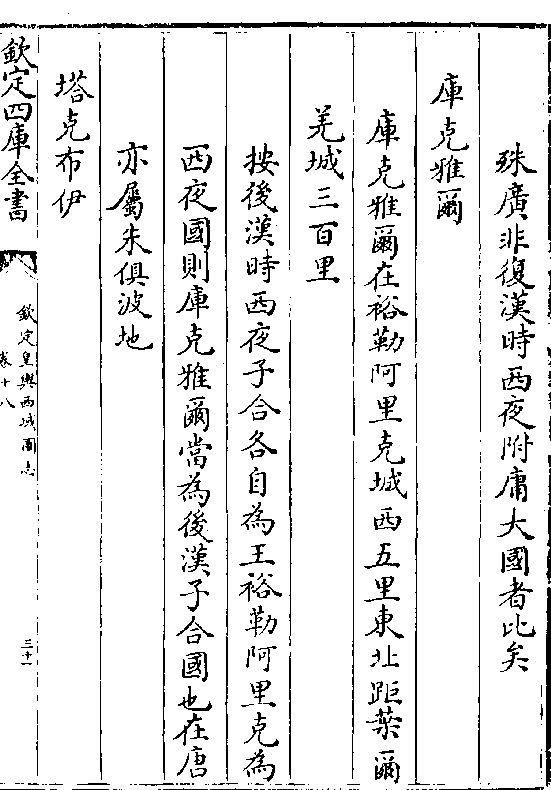 殊廣非復漢時西夜附庸大國者比矣
庫克雅爾
庫克雅爾在裕勒阿里克城西五里東北距葉爾
羌城三百里
按後漢時西夜子合各自為王裕勒阿里克為
西夜國則庫克雅爾當為後漢子合國也在唐
亦屬朱俱波地
塔克布伊
欽定四庫全書
欽定皇輿西域圖志
卷十八
三十一